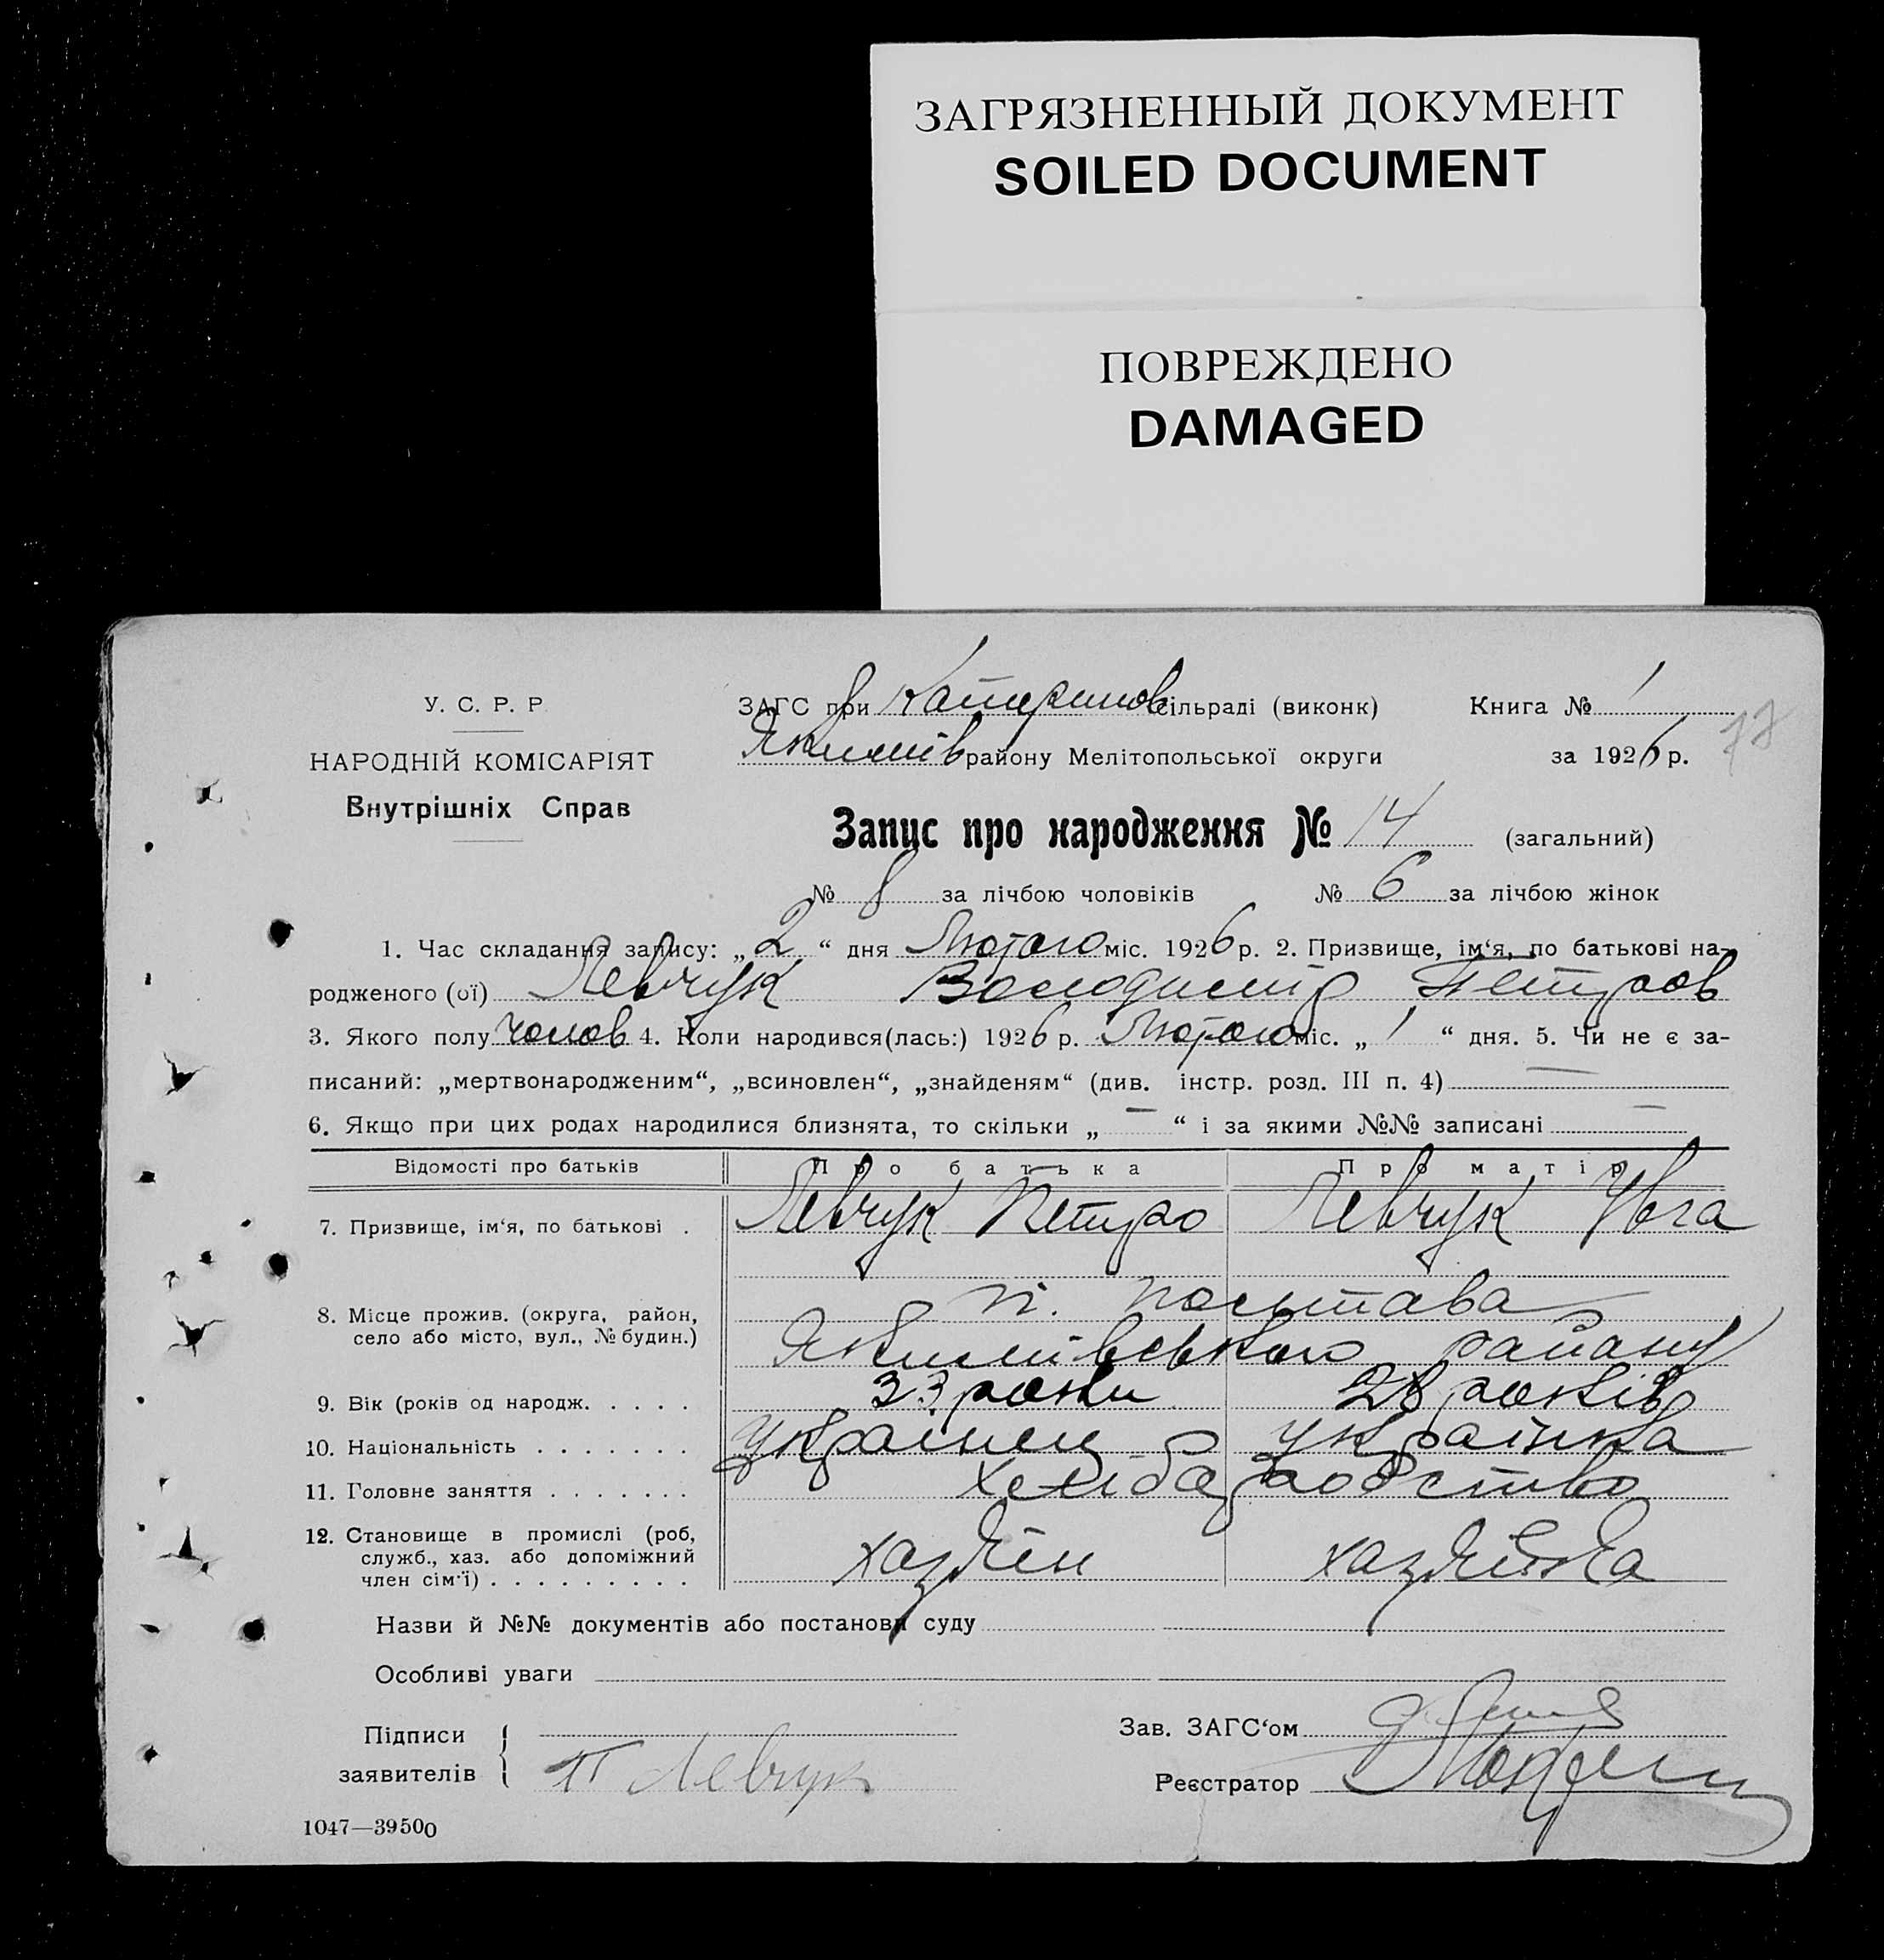 ЗАГРЯЗНЕННЫЙ ДОКУМЕНТ
SOILED DOCUMENT
ПОВРЕЖДЕНО
DAMAGED
У. С. Р. Р
НАРОДНІЙ КОМІСАРІЯТ
Внутрішніх Справ
ЗАГС при Катеринов сільраді (виконк) Книга № 1
Якимів району Мелітопольської округи за 1926 р.
Запис про народження № 14 (загальний)
№ 8 за лічбою чоловіків № 6 за лічбою жінок
1. Час складання запису: „2“ дня Лютого міс. 1926 р. 2. Призвище, ім‘я, по батькові на-
родженого (ої) Левчук Володимир Петров
3. Якого полу чолов 4. Коли народився(лась:) 1926 р. Лютого міс. „1“ дня. 5. Чи не є за-
писаний: „мертвонародженим“, „всиновлен“, „знайденям“ (див. інстр. розд. III п. 4) —
6. Якщо при цих родах народилися близнята, то скільки „—“ і за якими №№ записані —
Відомості про батьків Про батька Про матір
7. Призвище, ім‘я, по батькові . Левчук Петро Левчук Ївга
8. Місце прожив. (округа, район, п. Полтава
село або місто, вул., № будин.) Якимівського району
9. Вік (років од народж. . . . . 33 роки 28 років
10. Національність . . . . . . . українец українка
11. Головне заняття . . . . . . . хліборобство
12. Становище в промислі (роб,
служб., хаз. або допоміжний хазяїн хазяйка
член сім‘ї) . . . . . . . . .
Назви й №№ документів або постанови суду
Особливі уваги
Підписи Зав. ЗАГС‘ом
заявителів П Левчук Реєстратор
1047—39500